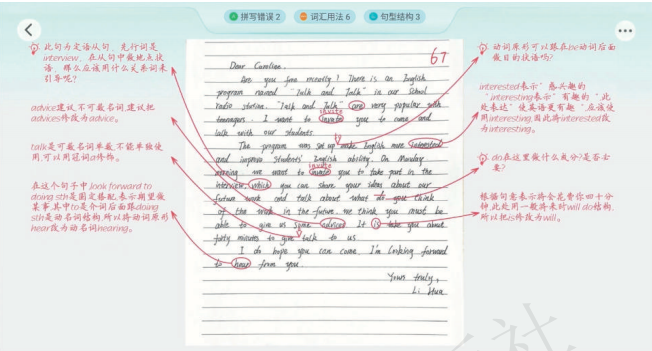 拼写错误 2
词汇用法 6
句型结构 3
此句为定语从句，先行词是
interview，在从句中做地点状
语，那么应该用什么关系词来
引导呢？
advice建议,不可数名词,建议把
advices修改为advice。
talk是可数名词单数,不能单独使
用,可以用冠词a修饰。
在这个句子中,look forward to
doing sth是固定搭配,表示期望做
某事,其中to是介词后面跟doing
sth是动名词结构,所以将动词原形
hear改为动名词hearing。
67
Dear Caroline,
Are you free recently? There is an English
program named "Talk and Talk" in our school
radio station. "Talk and Talk" are very popular with
teenagers. I want to invate you to come and
invite
talk with our students.
The program was set up make English more interested
and improve students' English ability. On Monday
invite
morning, we want to invate you to take part in the
interview, which you can share your ideas about our
future work and talk about what do you think
of the work in the future. we think you must be
able to give us some advices. It is take you about
forty minutes to give talk to us.
I do hope you can come. I'm looking forward
to hear from you.
Yours truly,
Li Hua
动词原形可以跟在be动词后面
做目的状语吗?
interested表示"感兴趣的
"interesting表示"有趣的"此
处表达"使英语更有趣"应该使
用interesting,因此将interested改
为interesting。
do在这里做什么成分?是否必
要?
根据句意表示将会花费你四十分
钟,此处用一般将来时will do结构,
所以把is修改为will。